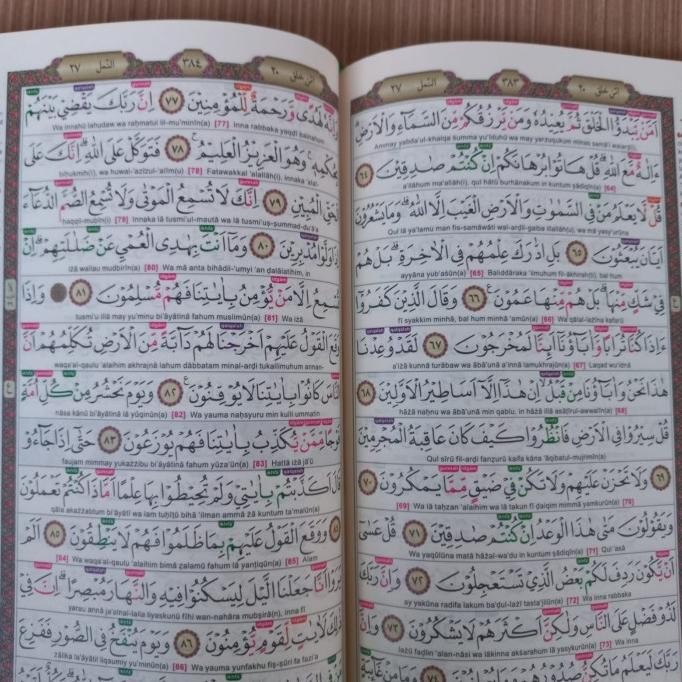 امن خلق ٢٠
٣٨٣
النمل ٢٧
اَمَّنْ يَّبْدَؤُا الْخَلْقَ ثُمَّ يُعِيْدُهٗ وَمَنْ يَّرْزُقُكُمْ مِّنَ السَّمَاۤءِ وَالْاَرْضِ
Ammay yabda'ul-khalqa summa yu'īduhū wa may yarzuqukum minas samā'i wal-ard(i),
ءَاِلٰهٌ مَّعَ اللّٰهِ قُلْ هَاتُوْا بُرْهَانَكُمْ اِنْ كُنْتُمْ صٰدِقِيْنَ ٦٤
a'ilāhum ma'allāh(i), qul hātū burhānakum in kuntum ṣādiqīn(a) [64]
قُلْ لَّا يَعْلَمُ مَنْ فِى السَّمٰوٰتِ وَالْاَرْضِ الْغَيْبَ اِلَّا اللّٰهُ وَمَا يَشْعُرُوْنَ
Qul lā ya'lamu man fis-samāwāti wal-arḍil-gaiba illallāh(u), wa mā yasy'urūna
اَيَّانَ يُبْعَثُوْنَ ٦٥ بَلِ ادّٰرَكَ عِلْمُهُمْ فِى الْاٰخِرَةِ بَلْ هُمْ
ayyāna yub'aṡūn(a) [65] Baliddāraka 'ilmuhum fil-ākhirah(ti), bal hum
فِيْ شَكٍّ مِّنْهَا بَلْ هُمْ مِّنْهَا عَمُوْنَ ٦٦ وَقَالَ الَّذِيْنَ كَفَرُوْٓا
fī syakkim minhā, bal hum minhā 'amūn(a) [66] Wa qālal-lażīna kafarū
ءَاِذَا كُنَّا تُرَابًا وَّاٰبَاۤؤُنَآ اَىِٕنَّا لَمُخْرَجُوْنَ ٦٧ لَقَدْ وُعِدْنَا
a'iżā kunnā turābaw wa ābā'unā a'innā lamukhrajūn(a) [67] Laqad wu'idnā
هٰذَا نَحْنُ وَاٰبَاۤؤُنَا مِنْ قَبْلُ اِنْ هٰذَآ اِلَّآ اَسَاطِيْرُ الْاَوَّلِيْنَ ٦٨
hāżā naḥnu wa ābā'unā min qablu, in hāżā illā asāṭīrul-awwalīn(a) [68]
قُلْ سِيْرُوْا فِى الْاَرْضِ فَانْظُرُوْا كَيْفَ كَانَ عَاقِبَةُ الْمُجْرِمِيْنَ
Qul sīrū fil-arḍi fanẓurū kaifa kāna 'āqibatul-mujrimīn(a)
٦٩ وَلَا تَحْزَنْ عَلَيْهِمْ وَلَا تَكُنْ فِيْ ضَيْقٍ مِّمَّا يَمْكُرُوْنَ ٧٠
[69] Wa lā taḥzan 'alaihim wa lā takun fī ḍaiqim mimmā yamkurūn(a) [70]
وَيَقُوْلُوْنَ مَتٰى هٰذَا الْوَعْدُ اِنْ كُنْتُمْ صٰدِقِيْنَ ٧١ قُلْ عَسٰٓى
Wa yaqūlūna matā hāżal-wa'du in kuntum ṣādiqīn(a) [71] Qul 'asā
اَنْ يَّكُوْنَ رَدِفَ لَكُمْ بَعْضُ الَّذِيْ تَسْتَعْجِلُوْنَ ٧٢ وَاِنَّ رَبَّكَ
ay yakūna radifa lakum ba'ḍul-lażī tasta'jilūn(a) [72] Wa inna rabbaka
لَذُوْ فَضْلٍ عَلَى النَّاسِ وَلٰكِنَّ اَكْثَرَهُمْ لَا يَشْكُرُوْنَ ٧٣ وَاِنَّ
lażū faḍlin 'alan-nāsi wa lākinna akṡarahum lā yasykurūn(a) [73] Wa inna
رَبَّكَ لَيَعْلَمُ مَا تُكِنُّ
امن خلق ٢٠
٣٨٤
النمل ٢٧
وَاِنَّهٗ لَهُدًى وَّرَحْمَةٌ لِّلْمُؤْمِنِيْنَ ٧٧ اِنَّ رَبَّكَ يَقْضِيْ بَيْنَهُمْ
Wa innahū lahudaw wa raḥmatul lil-mu'minīn(a) [77] Inna rabbaka yaqḍī bainahum
بِحُكْمِهٖ وَهُوَ الْعَزِيْزُ الْعَلِيْمُ ٧٨ فَتَوَكَّلْ عَلَى اللّٰهِ اِنَّكَ عَلَى
biḥukmih(ī), wa huwal-'azīzul-'alīm(u) [78] Fatawakkal 'alallāh(i), innaka 'alal-
الْحَقِّ الْمُبِيْنِ ٧٩ اِنَّكَ لَا تُسْمِعُ الْمَوْتٰى وَلَا تُسْمِعُ الصُّمَّ الدُّعَاۤءَ
ḥaqqil-mubīn(i) [79] Innaka lā tusmi'ul-mautā wa lā tusmi'uṣ-ṣummad-du'ā'a
اِذَا وَلَّوْا مُدْبِرِيْنَ ٨٠ وَمَآ اَنْتَ بِهٰدِى الْعُمْيِ عَنْ ضَلٰلَتِهِمْ اِنْ
iżā wallau mudbirīn(a) [80] Wa mā anta bihādil-'umyi 'an ḍalālatihim, in
تُسْمِعُ اِلَّا مَنْ يُّؤْمِنُ بِاٰيٰتِنَا فَهُمْ مُّسْلِمُوْنَ ٨١ وَاِذَا
tusmi'u illā may yu'minu bi'āyātinā fahum muslimūn(a) [81] Wa iżā
وَقَعَ الْقَوْلُ عَلَيْهِمْ اَخْرَجْنَا لَهُمْ دَاۤبَّةً مِّنَ الْاَرْضِ تُكَلِّمُهُمْ اَنَّ
waqa'al-qaulu 'alaihim akhrajnā lahum dābbatam minal-arḍi tukallimuhum annan-
النَّاسَ كَانُوْا بِاٰيٰتِنَا لَا يُوْقِنُوْنَ ٨٢ وَيَوْمَ نَحْشُرُ مِنْ كُلِّ اُمَّةٍ
nāsa kānū bi'āyātinā lā yūqinūn(a) [82] Wa yauma naḥsyuru min kulli ummatin
فَوْجًا مِّمَّنْ يُّكَذِّبُ بِاٰيٰتِنَا فَهُمْ يُوْزَعُوْنَ ٨٣ حَتّٰٓى اِذَا جَاۤءُوْ
faujam mimmay yukażżibu bi'āyātinā fahum yūza'ūn(a) [83] Ḥattā iżā jā'ū
قَالَ اَكَذَّبْتُمْ بِاٰيٰتِيْ وَلَمْ تُحِيْطُوْا بِهَا عِلْمًا اَمَّاذَا كُنْتُمْ تَعْمَلُوْنَ
qāla akażżabtum bi'āyātī wa lam tuḥīṭū bihā 'ilman ammā żā kuntum ta'malūn(a)
٨٤ وَوَقَعَ الْقَوْلُ عَلَيْهِمْ بِمَا ظَلَمُوْا فَهُمْ لَا يَنْطِقُوْنَ ٨٥ اَلَمْ
[84] Wa waqa'al-qaulu 'alaihim bimā ẓalamū fahum lā yanṭiqūn(a) [85] Alam
يَرَوْا اَنَّا جَعَلْنَا الَّيْلَ لِيَسْكُنُوْا فِيْهِ وَالنَّهَارَ مُبْصِرًا اِنَّ فِيْ
yarau annā ja'alnal-laila liyaskunū fīhi wan-nahāra mubṣirā(n), inna fī
ذٰلِكَ لَاٰيٰتٍ لِّقَوْمٍ يُّؤْمِنُوْنَ ٨٦ وَيَوْمَ يُنْفَخُ فِى الصُّوْرِ فَفَزِعَ
żālika la'āyātil liqaumiy yu'minūn(a) [86] Wa yauma yunfakhu fiṣ-ṣūri fa fazi'a